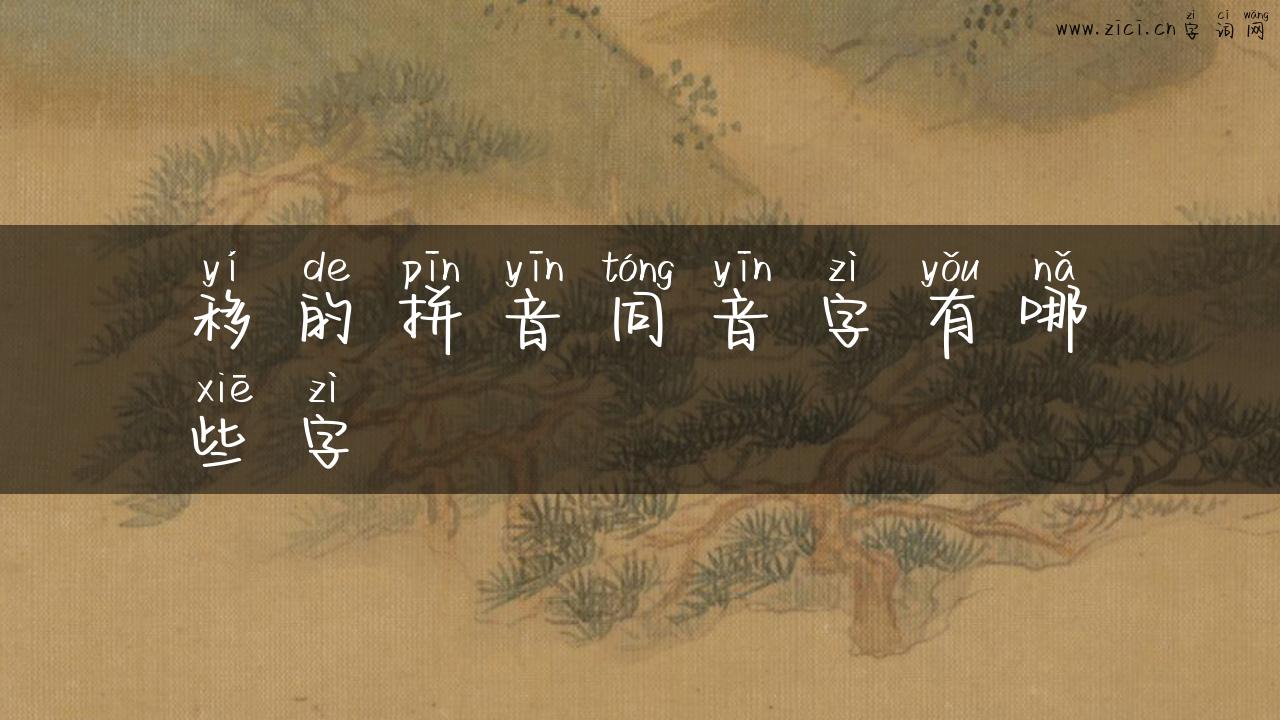 zì cí wǎng
www.zici.cn 字 词 网
yí de pīn yīn tóng yīn zì yǒu nǎ
移 的 拼 音 同 音 字 有 哪
xiē zì
些 字